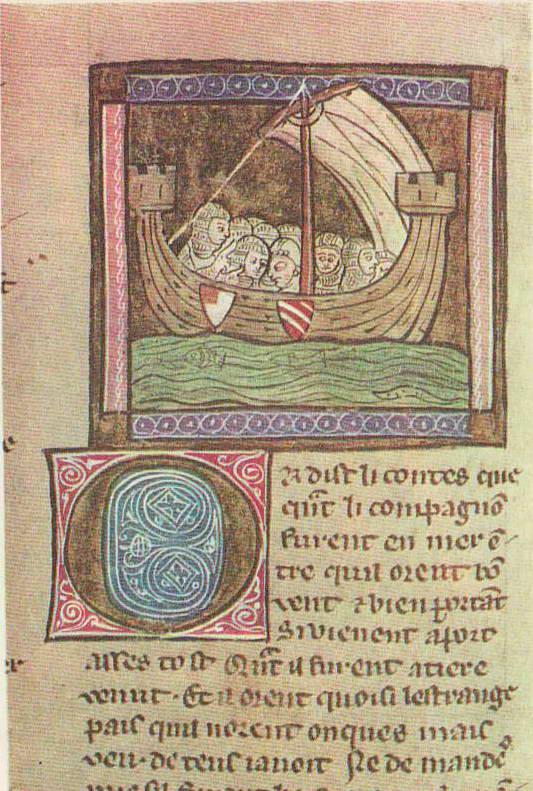 Or dist li contes que
qñt li compagnō
furent en mer ē
tre quil orent bō
vent ⁊ bien portāt
Si vienent a port
asses tost Qñt il furent a tiere
venut · Et il orent quoisi lestrange
pais quil norent onques mais
veu · de teus i avoit